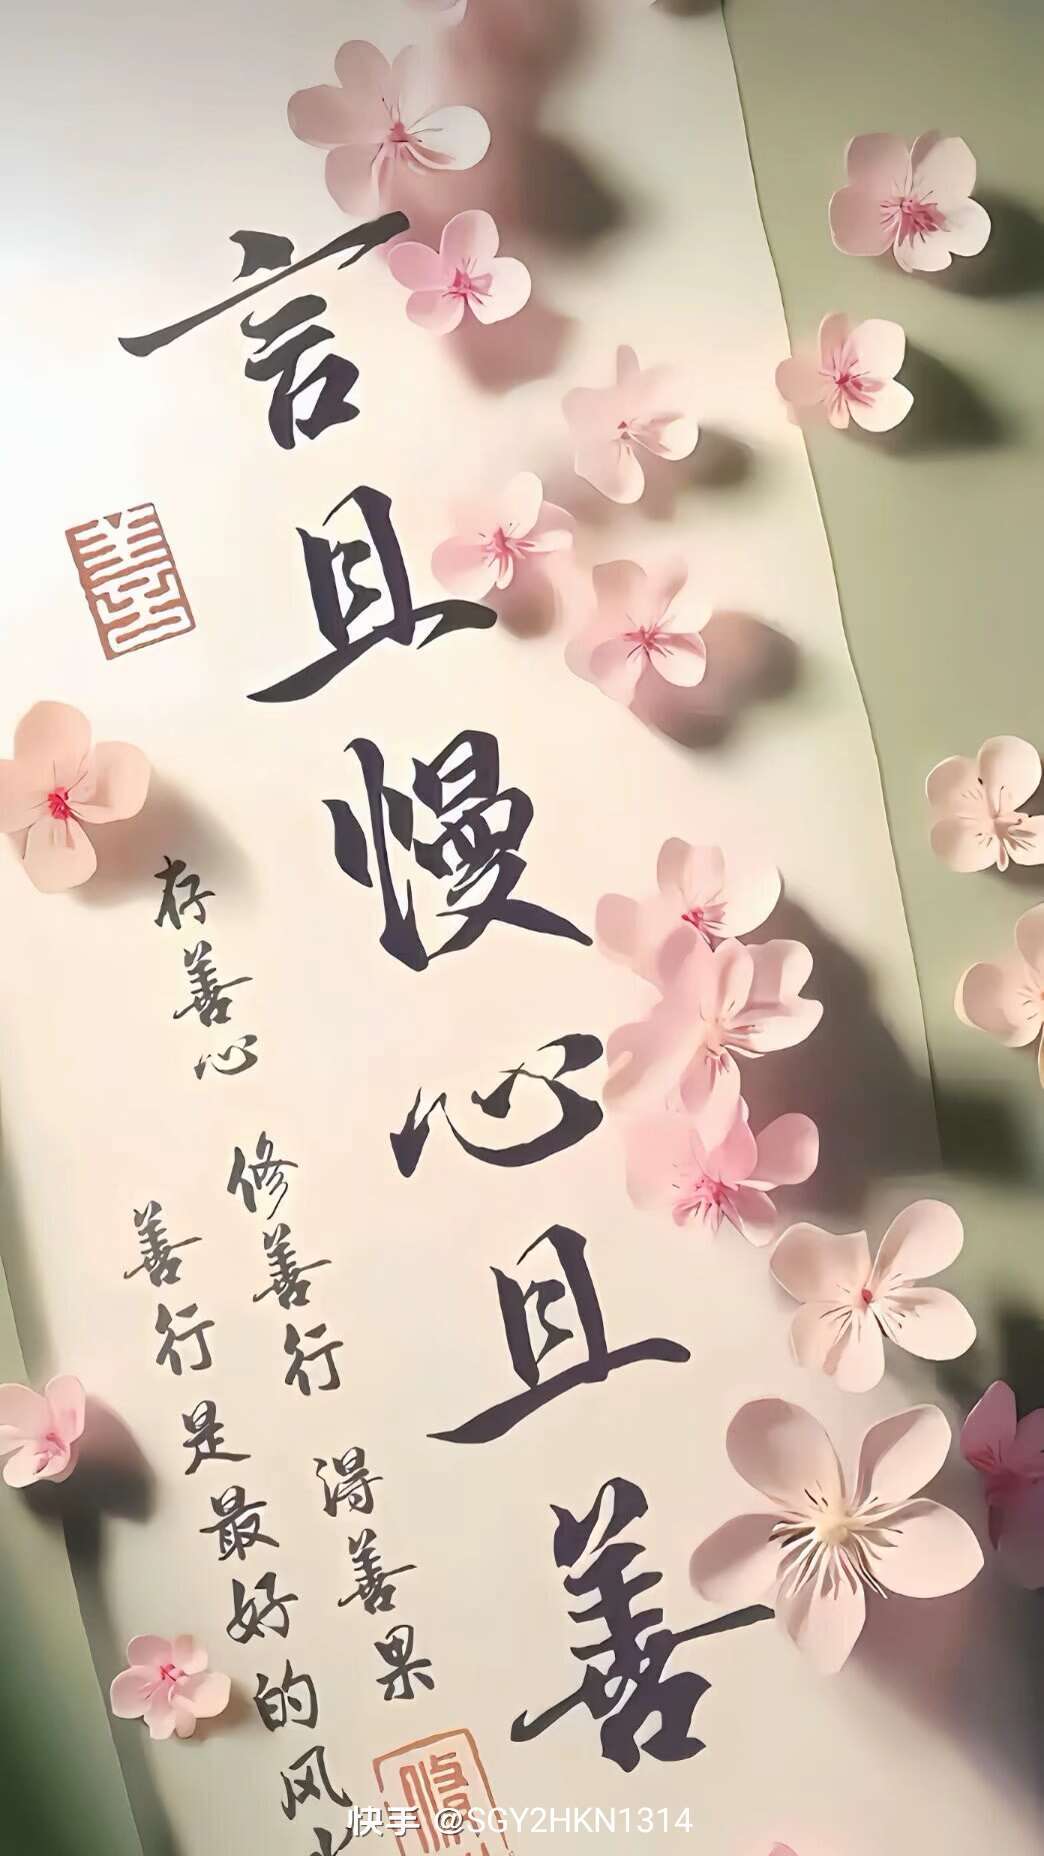 言且慢心且善
存善心 修善行 得善果
善行是最好的风
善
修
快手 @SGY2HKN1314